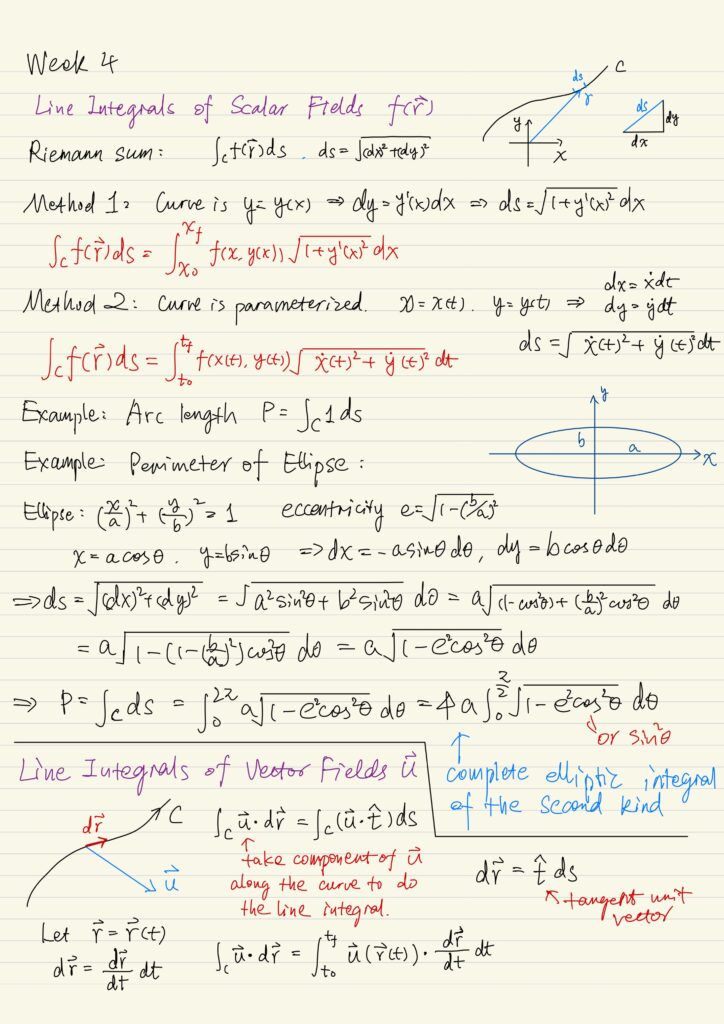 Week 4
Line Integrals of Scalar Fields f(r⃗)
ds C
r⃗
y x
ds dy dx
Riemann sum: ∫_C f(r⃗)ds . ds=√((dx)²+(dy)²)
Method 1: Curve is y=y(x) ⇒ dy=y'(x)dx ⇒ ds=√(1+y'(x)²) dx
∫_C f(r⃗)ds = ∫_{x₀}^{x_f} f(x, y(x)) √(1+y'(x)²) dx
Method 2: Curve is parameterized. x=x(t). y=y(t) ⇒ dx=ẋdt dy=ẏdt
∫_C f(r⃗)ds = ∫_{t₀}^{t_f} f(x(t), y(t)) √(ẋ(t)²+ẏ(t)²) dt
ds=√(ẋ(t)²+ẏ(t)²) dt
Example: Arc length P=∫_C 1 ds
Example: Perimeter of Ellipse:
y b a x
Ellipse: (x/a)²+(y/b)²=1 eccentricity e=√(1-(b/a)²)
x=a cosθ. y=b sinθ ⇒ dx=-a sinθ dθ, dy=b cosθ dθ
⇒ ds=√((dx)²+(dy)²) = √(a²sin²θ+b²sin²θ) dθ = a√((1-cos²θ)+(b/a)²cos²θ) dθ
= a√(1-(1-(b/a)²)cos²θ) dθ = a√(1-e²cos²θ) dθ
⇒ P=∫_C ds = ∫_0^{2π} a√(1-e²cos²θ) dθ = 4a∫_0^{π/2} √(1-e²cos²θ) dθ
or sin²θ
complete elliptic integral
of the second kind
Line Integrals of Vector Fields u⃗
dr⃗ C u⃗
∫_C u⃗·dr⃗ = ∫_C (u⃗·t̂)ds
take component of u⃗
along the curve to do
the line integral.
dr⃗ = t̂ ds
tangent unit
vector
Let r⃗=r⃗(t)
dr⃗ = dr⃗/dt dt
∫_C u⃗·dr⃗ = ∫_{t₀}^{t_f} u⃗(r⃗(t))·dr⃗/dt dt